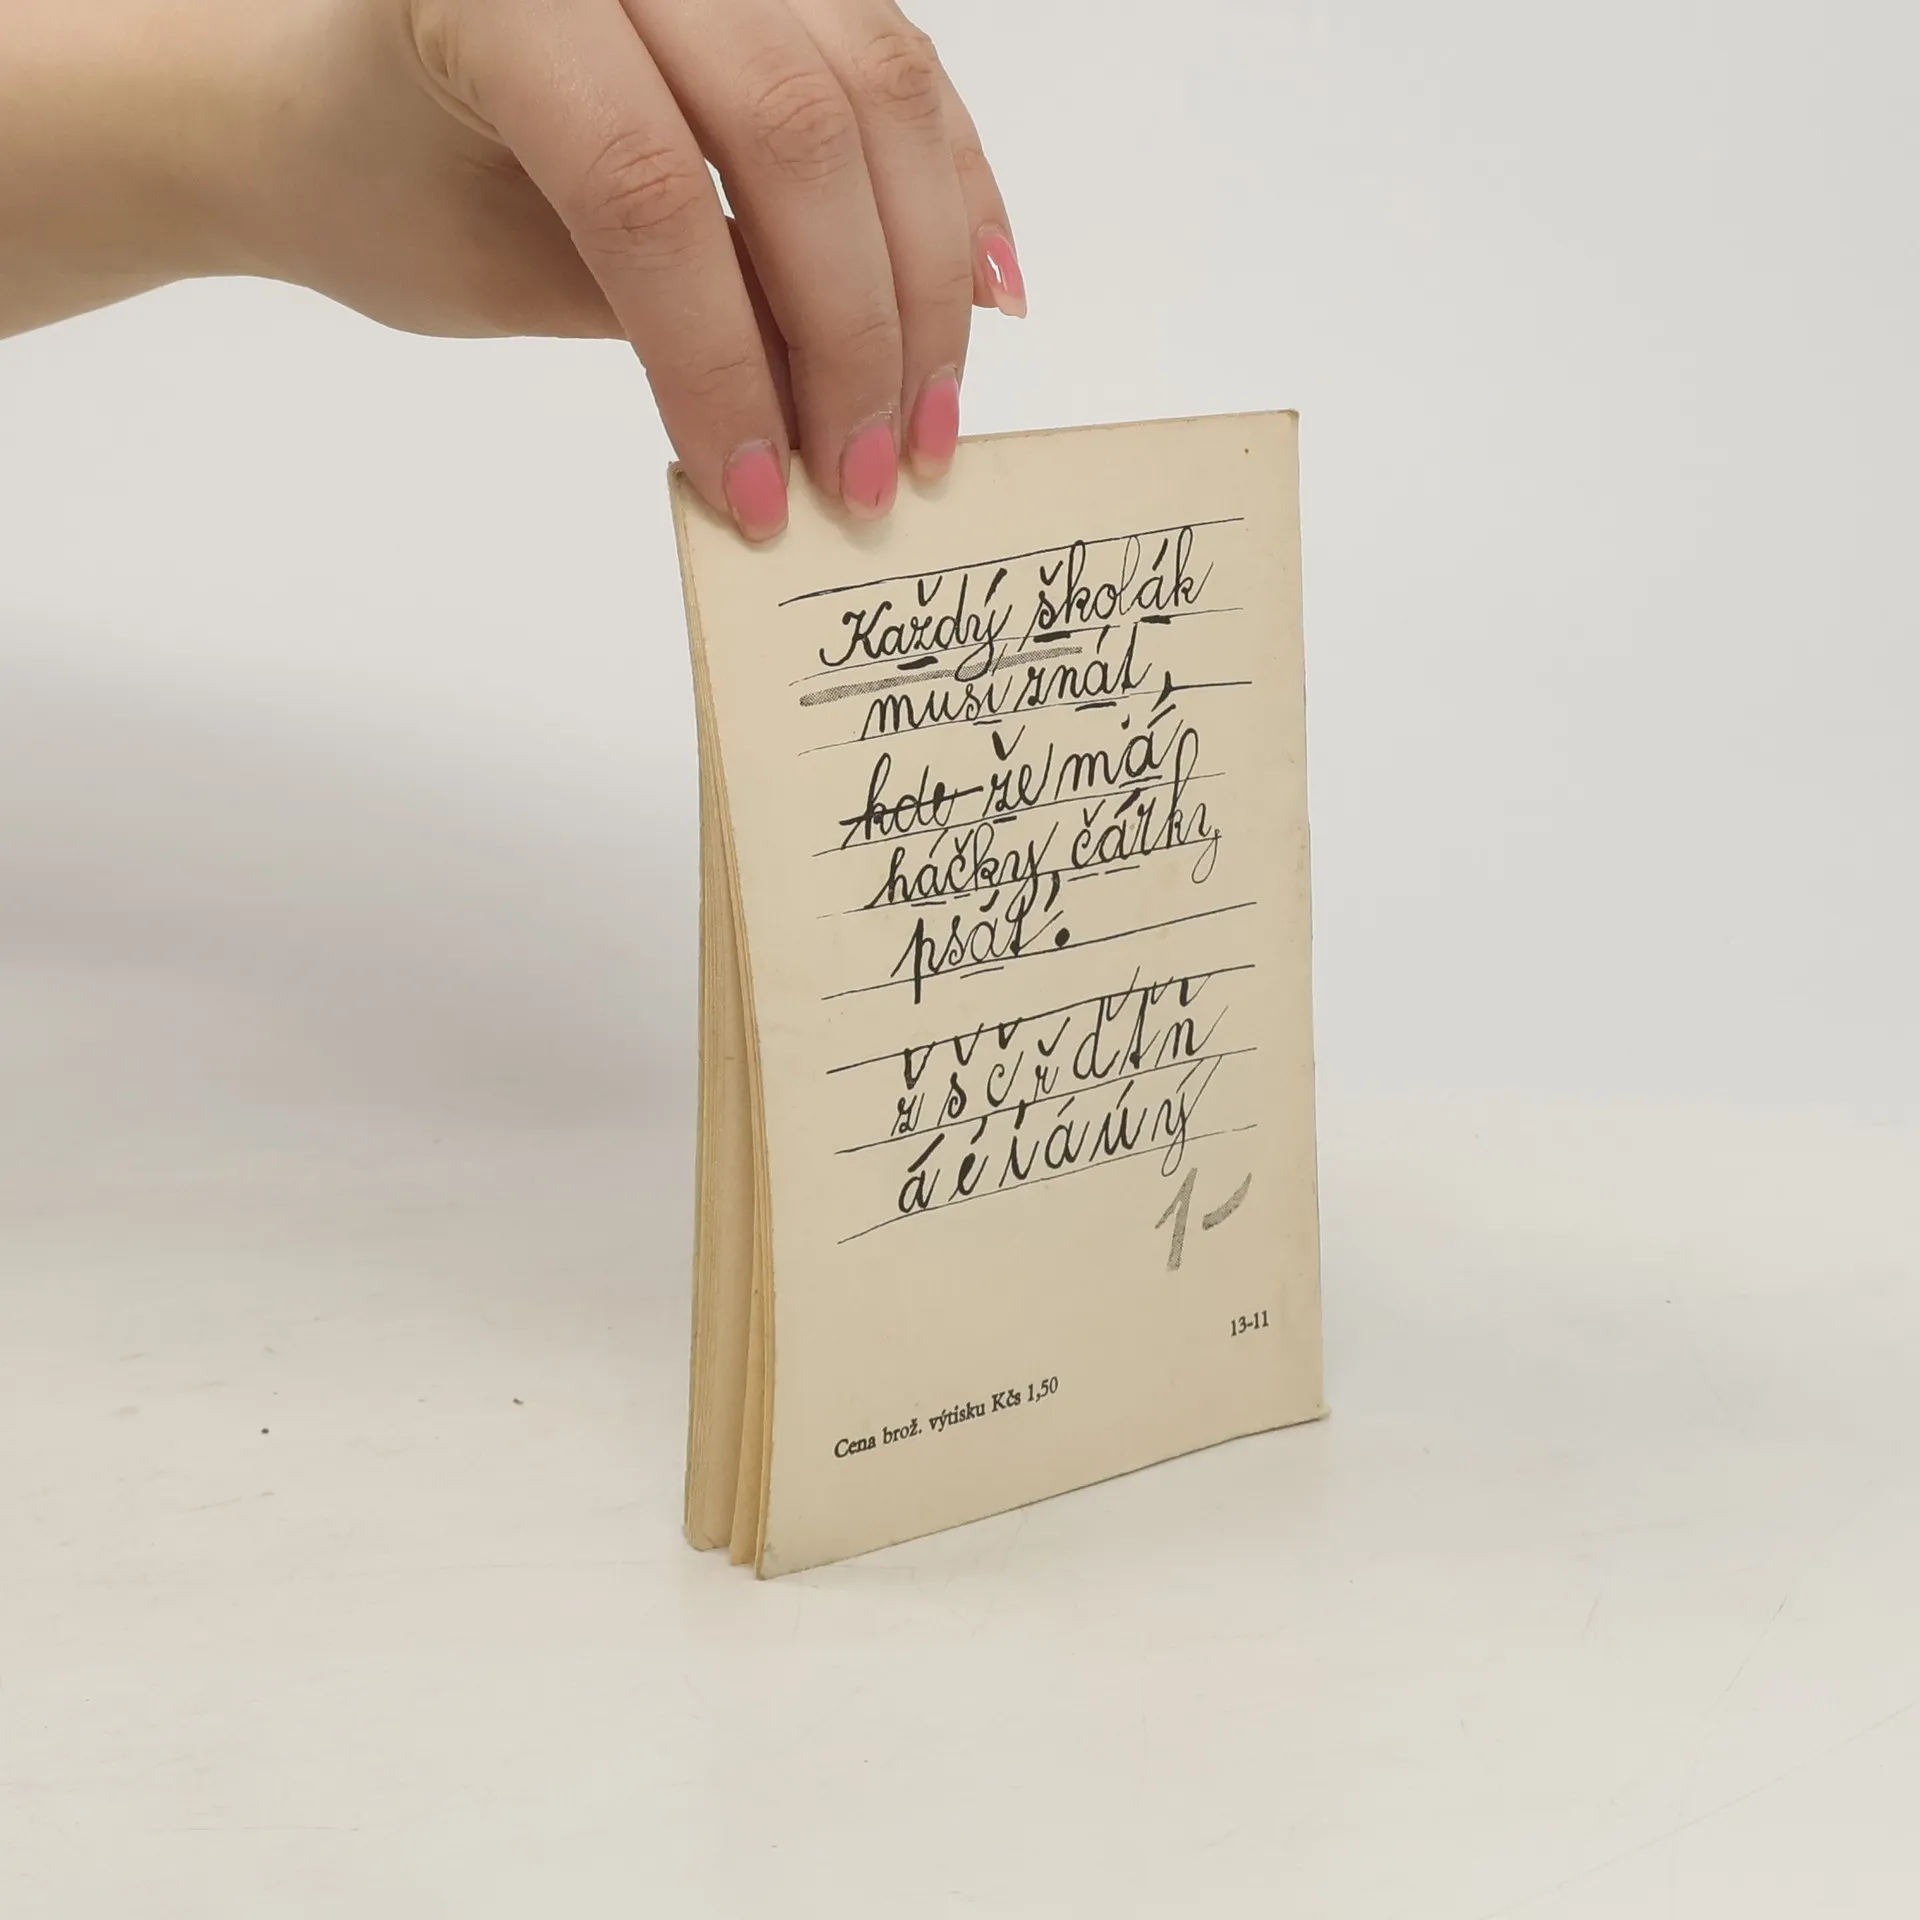 Každý školák
musí znát,
kde že má
háčky, čárky
psát.
ž š č ř ď ť ň
á é í á ú ý
1-
13-11
Cena brož. výtisku Kčs 1,50